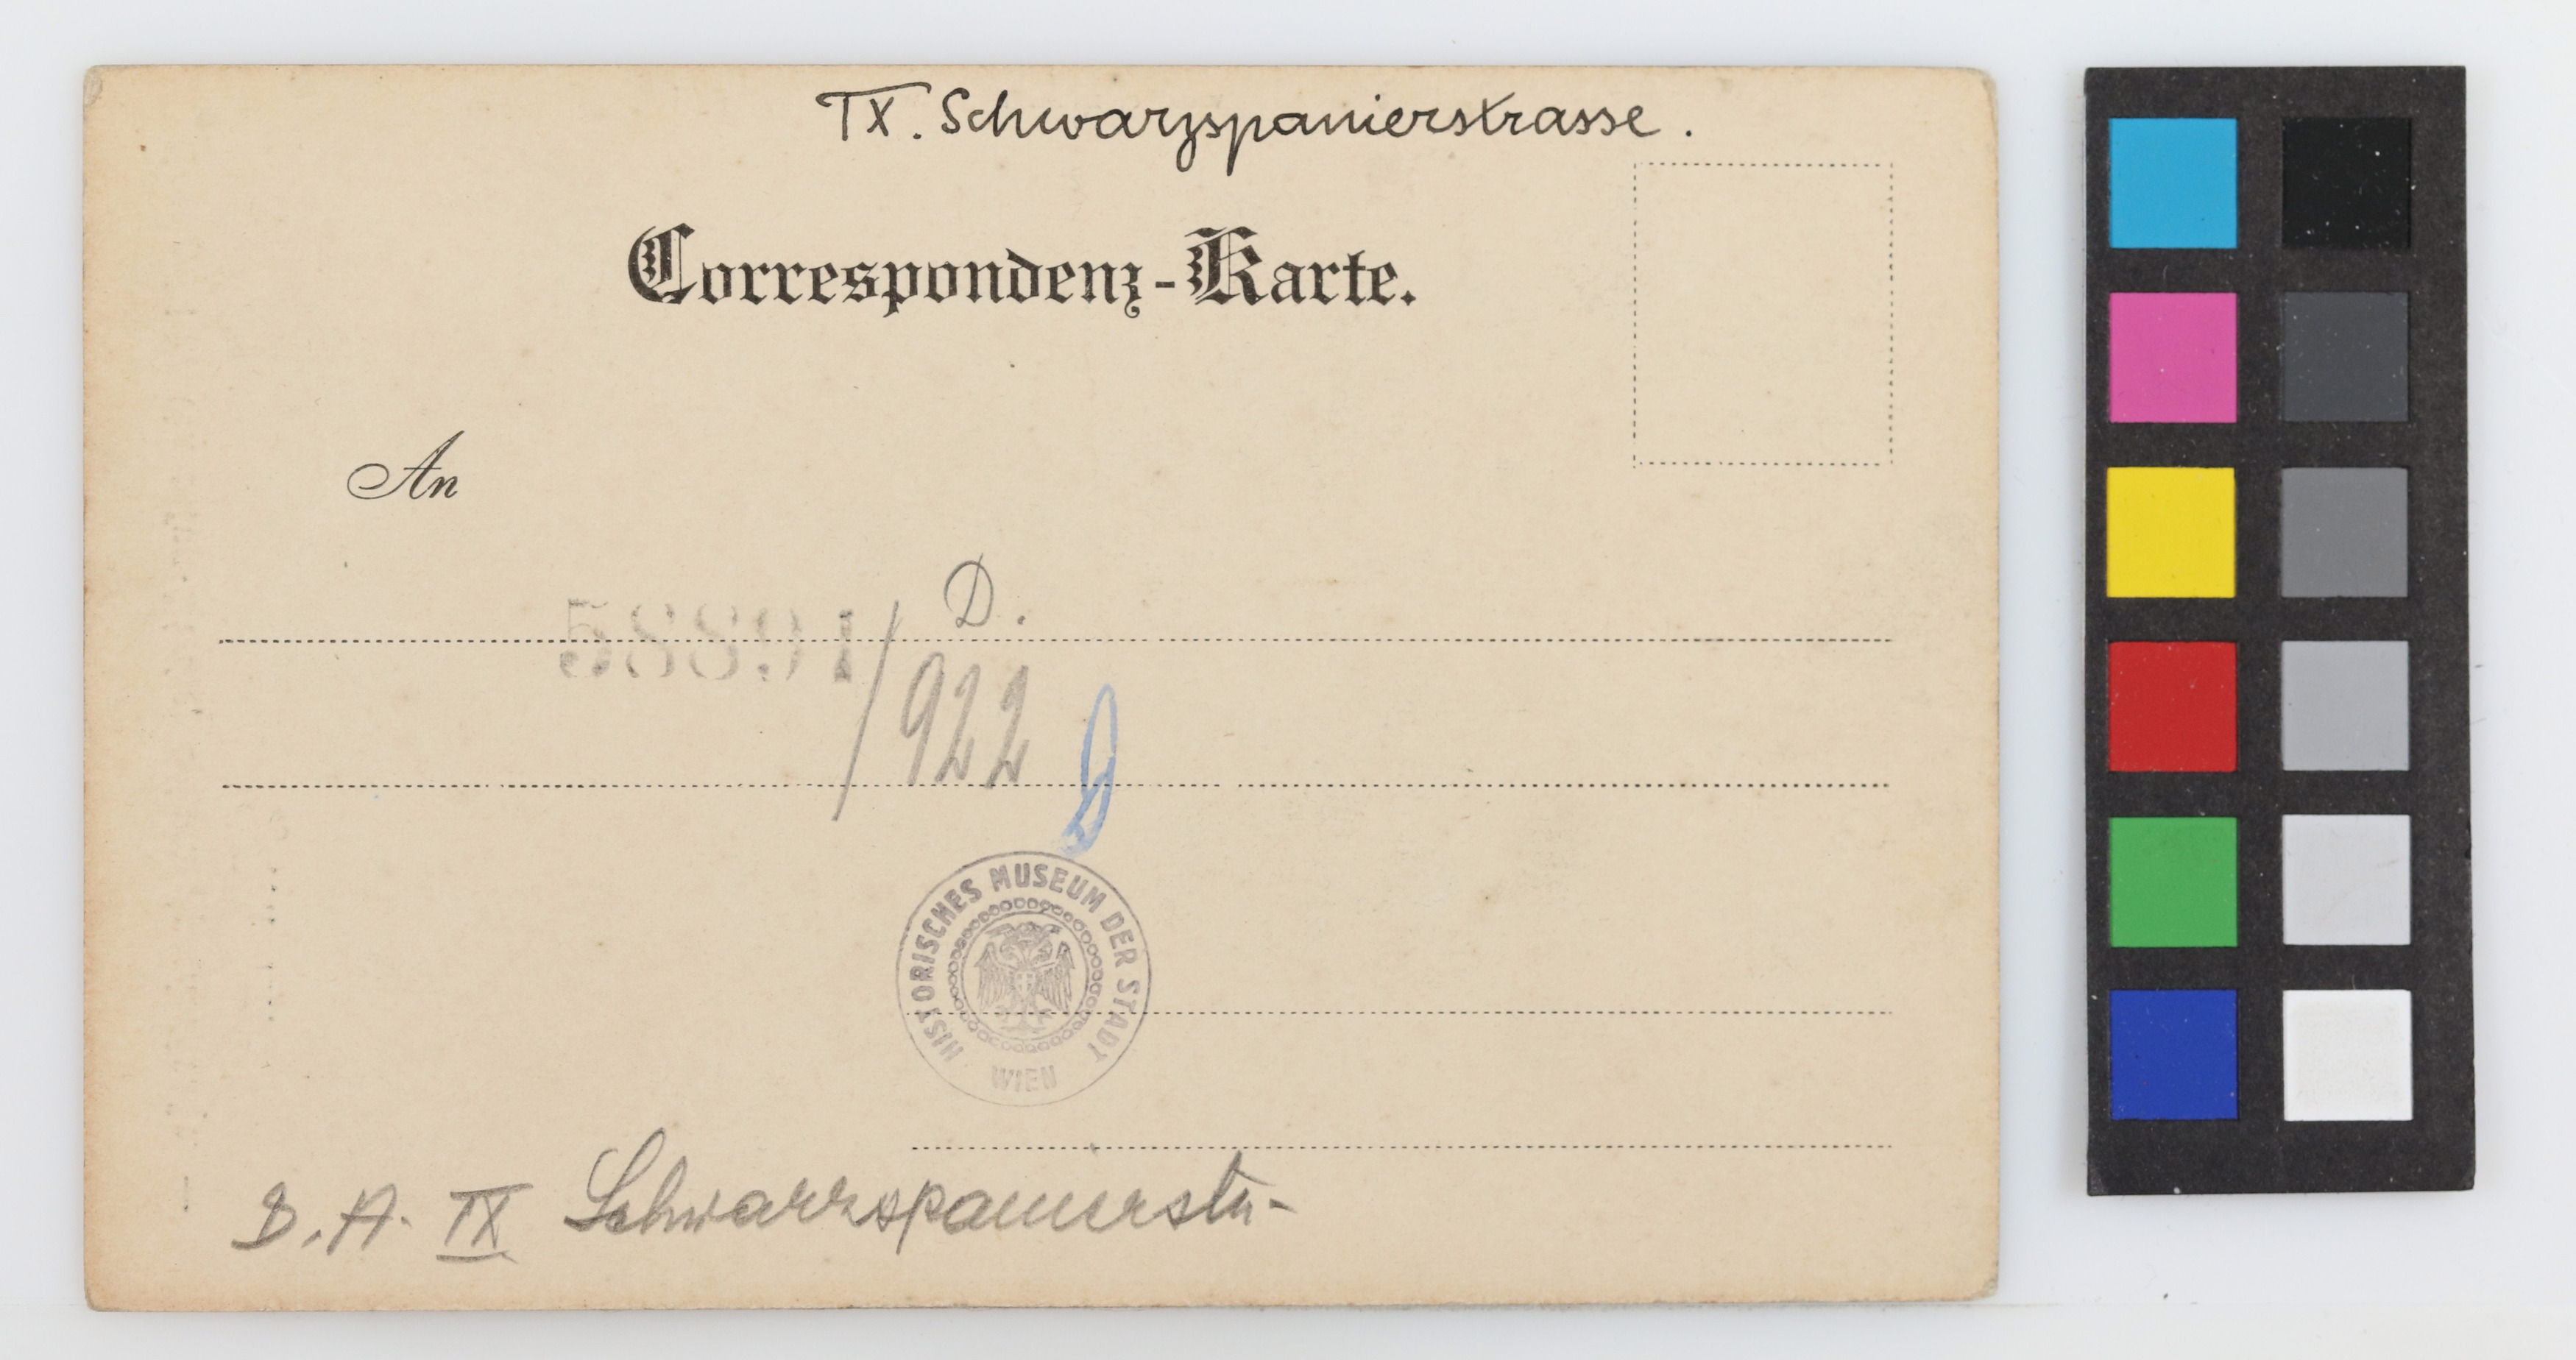 IX. Schwarzspanierstrasse.
Correspondenz-Karte.
An
D.
58891/
922
HISTORISCHES MUSEUM DER STADT
WIEN
B. A. IX Schwarzspanierstr-